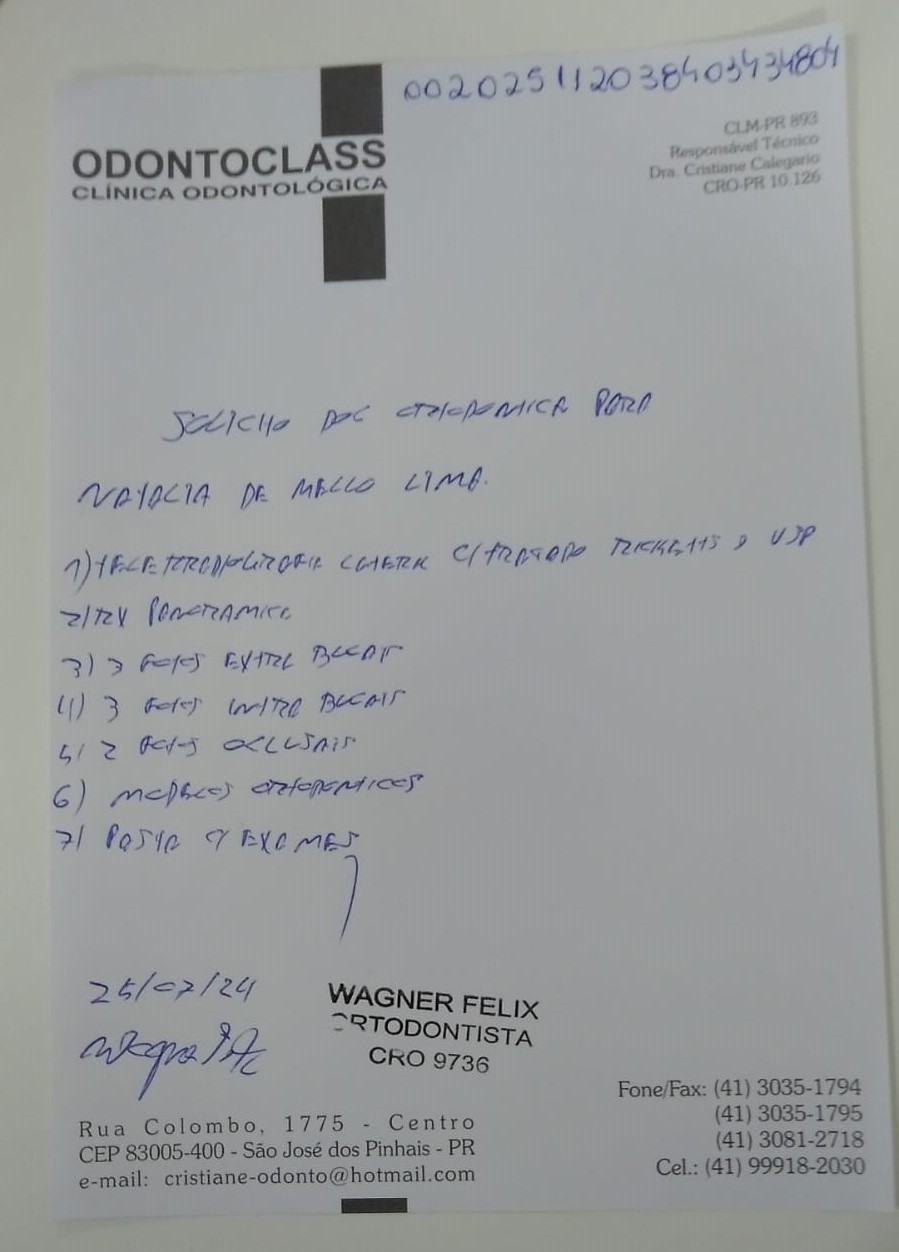 002025112038403434804
ODONTOCLASS
CLÍNICA ODONTOLÓGICA
CLM-PR 893
Responsável Técnico
Dra. Cristiane Calegario
CRO-PR 10.126
SOLICITO DOC ORTODONTICA PARA
NATALIA DE MELLO LIMA.
1) TELERRADIOGRAFIA LATERAL C/ TRAÇADO RICKETTS E USP
2) RX PANORAMICA
3) 3 FOTOS EXTRA BUCAIS
4) 3 FOTOS INTRA BUCAIS
5) 2 FOTOS OCLUSAIS
6) MODELOS ORTODONTICOS
7) PASTA C/ EXAMES
25/07/24
WAGNER FELIX
ORTODONTISTA
CRO 9736
Rua Colombo, 1775 - Centro
CEP 83005-400 - São José dos Pinhais - PR
e-mail: cristiane-odonto@hotmail.com
Fone/Fax: (41) 3035-1794
(41) 3035-1795
(41) 3081-2718
Cel.: (41) 99918-2030